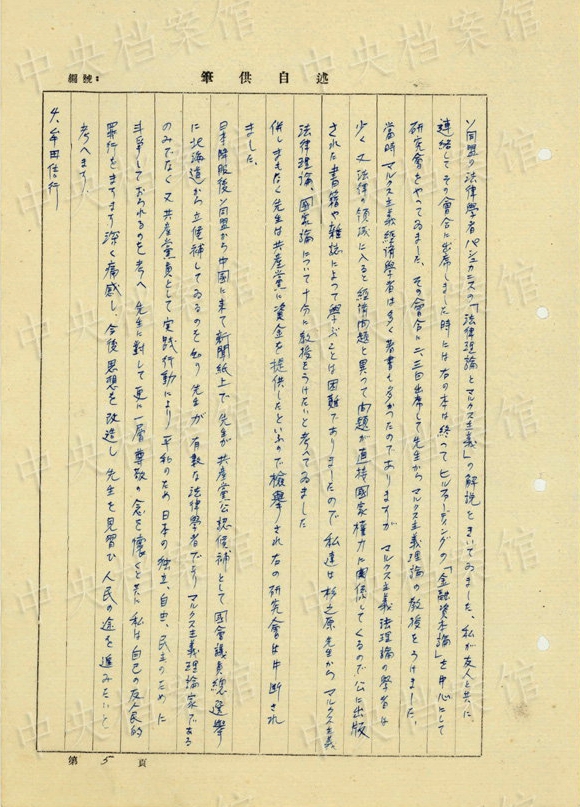 編號:
筆供自述
ソ同盟の法律學者パシュカニスの「法律理論とマルクス主義」の解説をきいてゐました、私が友人と共に
連絡してその會合に出席しました時には右の本は終つてヒルファーディングの「金融資本論」を中心にして
研究會をやつてゐました、その會合に二、三回出席して先生からマルクス主義理論の教授をうけました、
當時マルクス主義経済學者は多く著書も多かつたのでありますがマルクス主義法理論の學者は
少く又法律の領域に入ると経済問題と異つて問題が直接國家權力に関係してくるので公に出版
された書籍や雜誌によつて學ぶことは困難でありましたので私達は杉之原先生からマルクス主義
法律理論、國家論について十分に教授をうけたいと考へてゐました
併しまもなく先生は共産党に資金を提供したといふので檢擧され右の研究會は中断され
ました、
日本降服後ソ同盟から中國に来て新聞紙上で先生が共産党公認候補として國會議員総選擧
に北海道から立候補してゐるのを知り先生が有數な法律學者でありマルクス主義理論家である
のみでなく又共産党員として実践行動により平和のため日本の独立、自由、民主のために
斗爭しておられるのを考へ先生に対して更に一層尊敬の念を懐くと共に私は自己の反人民的
罪行をますます深く痛感し、今後思想を改造し先生を見習ひ人民の途を進みたいと
考へます、
4、牟田佳行
第5頁
中央档案馆